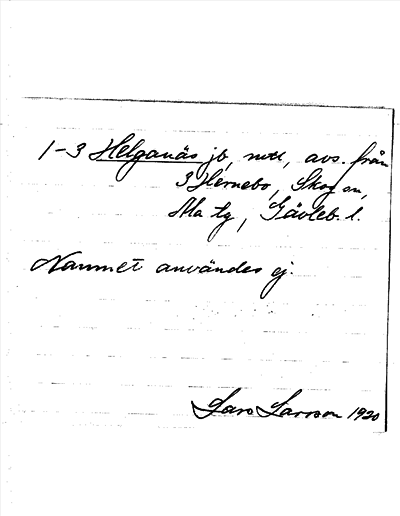 1-3 Helganäs jb, mtl, avs. från
3 Hernebo, Skog sn,
Ala tg, Gävleb. l.
Namnet användes ej.
Lars Larsson 1920